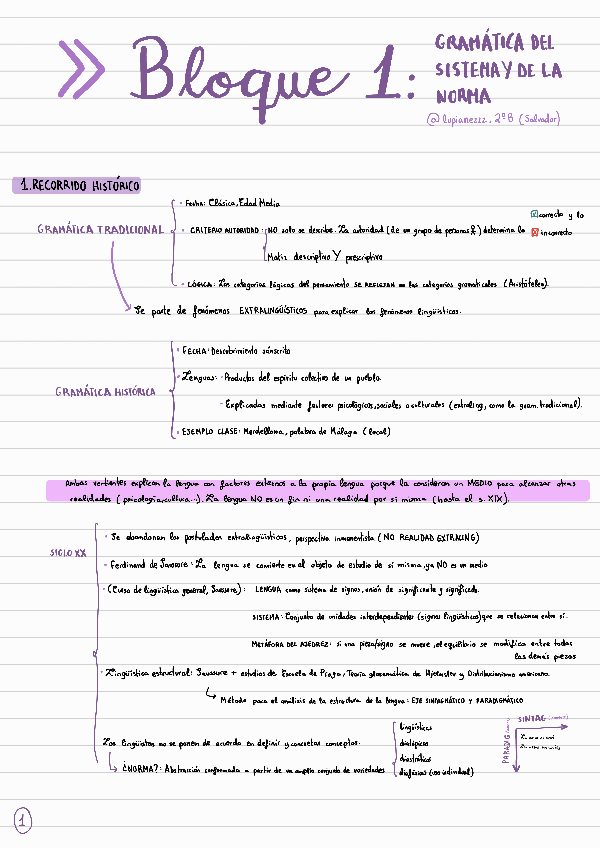 Bloque 1:
GRAMÁTICA DEL
SISTEMA Y DE LA
NORMA
@lupianezzz, 2ºB (Salvador)
1. RECORRIDO HISTÓRICO
GRAMÁTICA TRADICIONAL
· FECHA: Clásica, Edad Media
· CRITERIO AUTORIDAD: NO solo se describe. La autoridad (de un grupo de personas) determina lo
correcto y lo
incorrecto
Matiz descriptivo Y prescriptivo
· LÓGICA: Las categorías lógicas del pensamiento SE REFLEJAN en las categorías gramaticales (Aristóteles).
Se parte de fenómenos EXTRALINGÜÍSTICOS para explicar los fenómenos lingüísticos.
GRAMÁTICA HISTÓRICA
· FECHA: Descubrimiento sánscrito
· Lenguas: - Productos del espíritu colectivo de un pueblo.
- Explicadas mediante factores psicológicos, sociales o culturales (extraling, como la gram. tradicional).
· EJEMPLO CLASE: Merdellona, palabra de Málaga (local)
Ambas vertientes explican la lengua con factores externos a la propia lengua porque la consideran un MEDIO para alcanzar otras
realidades (psicología, cultura...). La lengua NO es un fin ni una realidad por sí misma (hasta el s. XIX).
SIGLO XX
· Se abandonan los postulados extralingüísticos, perspectiva inmanentista (NO REALIDAD EXTRALING)
· Ferdinand de Saussure: La lengua se convierte en el objeto de estudio de sí misma, ya NO es un medio
· (Curso de lingüística general, Saussure): LENGUA como sistema de signos, unión de significante y significado.
SISTEMA: Conjunto de unidades interdependientes (signos lingüísticos) que se relacionan entre sí.
METÁFORA DEL AJEDREZ: si una pieza/signo se mueve, el equilibrio se modifica entre todas
las demás piezas
· Lingüística estructural: Saussure + estudios de Escuela de Praga, Teoría glosemática de Hjelmslev y Distribucionismo americano.
Método para el análisis de la estructura de la lengua: EJE SINTAGMÁTICO Y PARADIGMÁTICO
Los lingüistas no se ponen de acuerdo en definir y concretar conceptos.
¿NORMA?: Abstracción conformada a partir de un amplio conjunto de variedades
lingüísticas
diatópicas
diastráticas
diafásicas (uso individual)
SINTAG
PARADIG
1